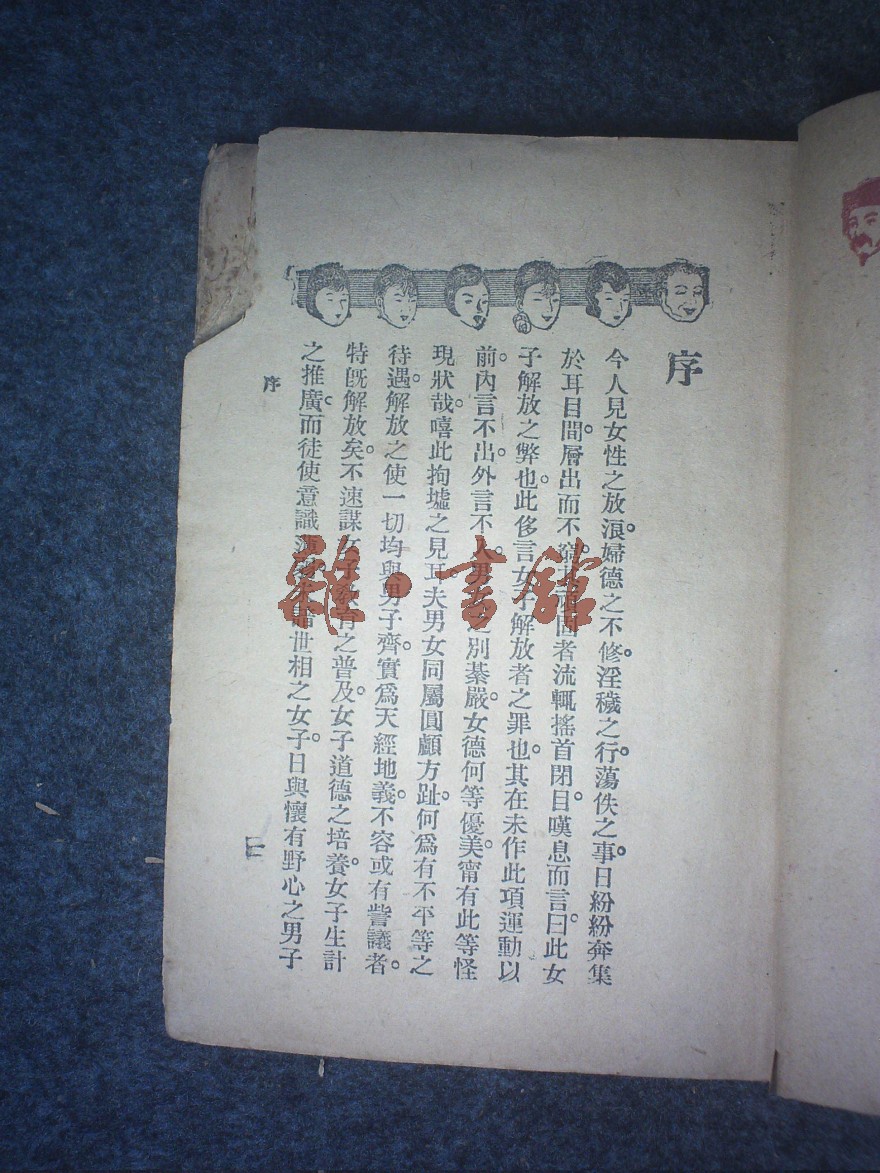 序
今人見女性之放浪。婦德之不修。淫穢之行。蕩佚之事。日紛紛奔集
於耳目間。層出而不 者流輒搖首閉目嘆息而言曰。此女
子解放之弊也。此侈言女子解放者之罪也。其在未作此項運動以
前。內言不出。外言不入。男女之別綦嚴。女德何等優美。甯有此等怪
現狀哉。嘻此拘墟之見耳。夫男女同屬圓顱方趾。何爲有不平等之
待遇。解放之使一切均與男子齊。實爲天經地義。不容或有訾議者。
特旣解放矣。不速謀女子教育之普及。女子道德之培養。女子生計
之推廣。而徒使意識 世相之女子。日與懷有野心之男子
序
一
雜·書館